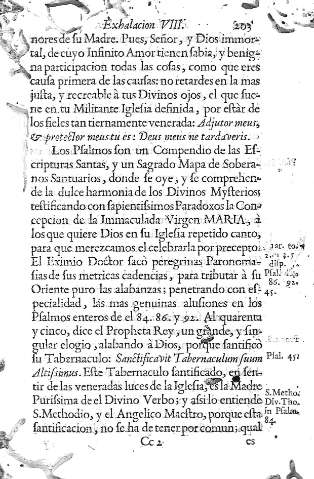 Exhalacion VIII. 203
nores de su Madre. Pues, Señor, y Dios immor-
tal, de cuyo Infinito Amor tienen sabia, y benig-
na participacion todas las cosas, como que eres
causa primera de las causas: no retardes en la mas
justa, y recreable à tus Divinos ojos, el que sue-
ne en tu Militante Iglesia definida, por estàr de
los fieles tan tiernamente venerada: Adjutor meus,
& protector meus tu es: Deus meus ne tardaveris.
Los Psalmos son un Compendio de las Es-
cripturas Santas, y un Sagrado Mapa de Sobera-
nos Santuarios, donde se oye, y se comprehen-
de la dulce harmonia de los Divinos Mysterios;
testificando con sapientissimos Paradoxos la Con-
cepcion de la Immaculada Virgen MARIA, à
los que quiere Dios en su Iglesia repetido canto,
para que merezcamos el celebrarla por precepto.
El Eximio Doctor sacò peregrinas Paronoma-
sias de sus metricas cadencias, para tributar à su
Oriente puro las alabanzas; penetrando con es-
pecialidad, las mas genuinas alusiones en los
Psalmos enteros de el 84. 86. y 92. Al quarenta
y cinco, dice el Propheta Rey, un grande, y sin-
gular elogio, alabando à Dios, porque santificò
su Tabernaculo: Sanctificavit Tabernaculum suum
Altissimus. Este Tabernaculo santificado, en sen-
tir de las veneradas luces de la Iglesia, es la Madre
Purissima de el Divino Verbo; y assi lo entiende
S. Methodio, y el Angelico Maestro, porque esta
santificacion, no se ha de tener por comun; qual
Cc 2 es
disp.
Psal.
86. 92.
45.
Psal. 45.
S. Metho.
Div. Tho.
in Psalm.
84.